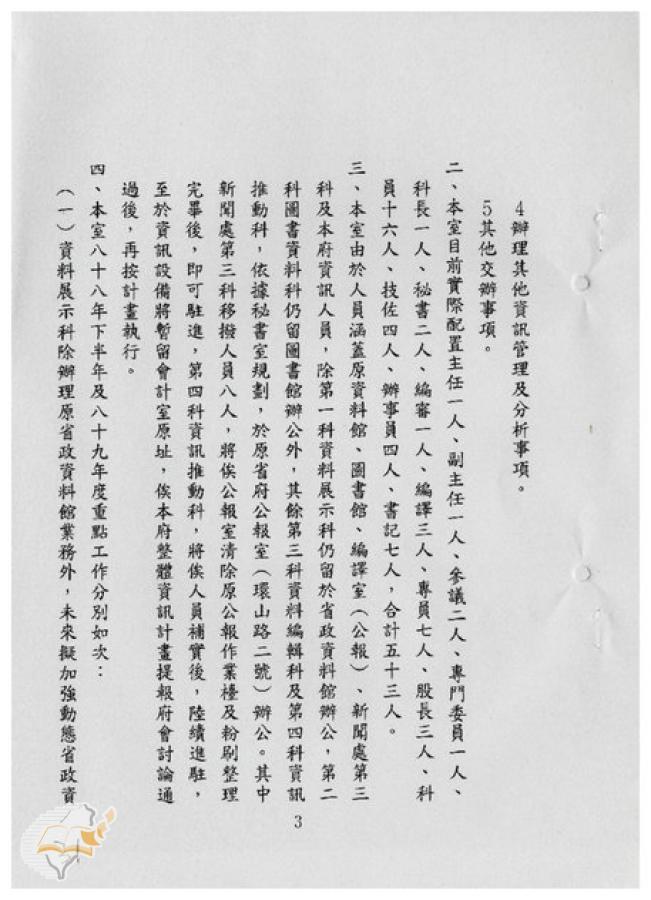 4辦理其他資訊管理及分析事項。
5其他交辦事項。
二、本室目前實際配置主任一人、副主任一人、參議二人、專門委員一人、
科長一人、秘書二人、編審一人、編譯三人、專員七人、股長三人、科
員十六人、技佐四人、辦事員四人、書記七人，合計五十三人。
三、本室由於人員涵蓋原資料館、圖書館、編譯室（公報）、新聞處第三
科及本府資訊人員，除第一科資料展示科仍留於省政資料館辦公，第二
科圖書資料科仍留圖書館辦公外，其餘第三科資料編輯科及第四科資訊
推動科，依據秘書室規劃，於原省府公報室（環山路二號）辦公。其中
新聞處第三科移撥人員八人，將俟公報室清除原公報作業檯及粉刷整理
完畢後，即可駐進，第四科資訊推動科，將俟人員補實後，陸續進駐，
至於資訊設備將暫留會計室原址，俟本府整體資訊計畫提報府會討論通
過後，再按計畫執行。
四、本室八十八年下半年及八十九年度重點工作分別如次：
（一）資料展示科除辦理原省政資料館業務外，未來擬加強動態省政資
3